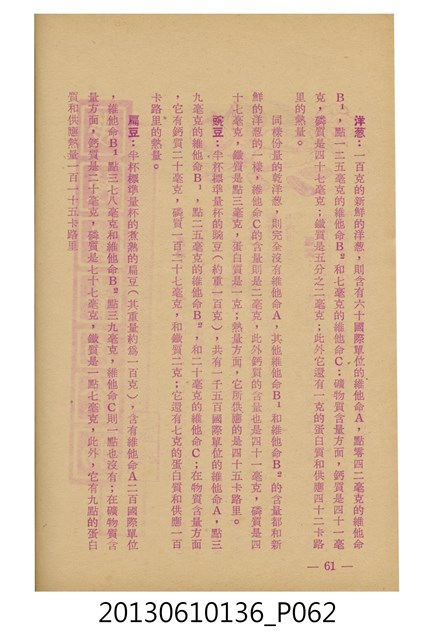 洋葱：一百克的新鮮的洋葱，則含有六十國際單位的維他命A，點零四二毫克的維他命
B¹，點一二五毫克的維他命B²和七毫克的維他命C；礦物質含量方面，鈣質是四十一毫
克，磷質是四十七毫克；鐵質是五分之二毫克；此外它還有一克的蛋白質和供應四十二卡路
里的熱量。
同樣份量的乾洋葱，則完全沒有維他命A，其他維他命B¹和維他命B²的含量都和新
鮮的洋葱的一樣，維他命C的含量則是二毫克，此外鈣質的含量也是四十一毫克，磷質是四
十七毫克，鐵質是點三毫克，蛋白質是一克；熱量方面，它所供應的是四十五卡路里。
豌豆：半杯標準量杯的豌豆（約重一百克），共有一千五百國際單位的維他命A，點三
九毫克的維他命B¹，點二五毫克的維他命B²，和二十毫克的維他命C；在物質含量方面
，它有鈣質二十毫克，磷質一百二十七毫克，和鐵質二克；它還有七克的蛋白質和供應一百
卡路里的熱量。
扁豆：半杯標準量杯的煮熟的扁豆（其重量約爲一百克），含有維他命A二百國際單位
，維他命B¹點三七八毫克和維他命B²點三九毫克，維他命C則一點也沒有；在礦物質含
量方面，鈣質是二十毫克，磷質是七十七毫克，鐵質是一點七毫克，此外，它有九點的蛋白
質和供應熱量一百一十五卡路里
— 61 —
20130610136_P062